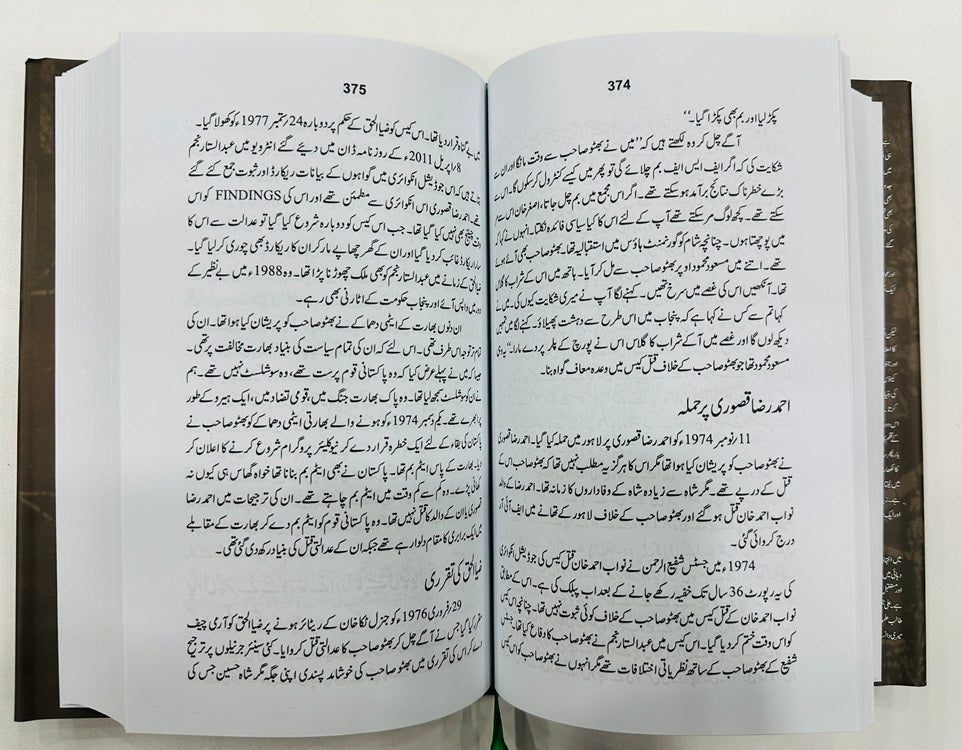 374
پکڑ لیا اور بم بھی پکڑا گیا۔‘‘
آگے چل کر وہ لکھتے ہیں کہ ’’میں نے بھٹو صاحب سے وقت مانگا اور ان سے
شکایت کی کہ اگر ایف ایس ایف بم چلائے گی تو پھر میں کیسے کنٹرول کرسکوں گا۔ اس کے
بڑے خطرناک نتائج برآمد ہوسکتے تھے۔ اگر اس مجمع میں بم چل جاتا، اصغر خان اس سے
سکتے تھے۔ کچھ لوگ مر سکتے تھے آپ کے لئے اس کا کیا سیاسی فائدہ نکلتا۔ انہوں نے کہا کہ
میں پوچھتا ہوں۔ چنانچہ شام کو گورنمنٹ ہاؤس میں استقبالیہ تھا۔ بھٹو صاحب بھی آئے ہوئے
تھے۔ اتنے میں مسعود محمود اوپر بھٹو صاحب سے مل کر آیا۔ ہاتھ میں اس کے شراب کا گلاس
تھا۔ آنکھیں اس کی غصے میں سرخ تھیں۔ کہنے لگا آپ نے میری شکایت کیوں کی۔ میں نے
کہا تم سے کس نے کہا ہے کہ پنجاب میں اس طرح سے دہشت پھیلاؤ۔ کہنے لگا میں تمہیں
دیکھ لوں گا اور غصے میں آکے شراب کا گلاس اس نے پورچ کے پلر پر دے مارا۔‘‘ یہ وہی
مسعود محمود تھا جو بھٹو صاحب کے خلاف قتل کیس میں وعدہ معاف گواہ بنا۔
احمد رضا قصوری پر حملہ
11/نومبر 1974ء کو احمد رضا قصوری پر لاہور میں حملہ کیا گیا۔ احمد رضا قصوری
نے بھٹو صاحب کو پریشان کیا ہوا تھا مگر اس کا ہرگز یہ مطلب نہیں تھا کہ بھٹو صاحب اس کے
قتل کے درپے تھے۔ مگر شاہ سے زیادہ شاہ کے وفاداروں کا زمانہ تھا۔ احمد رضا کے والد
نواب احمد خان قتل ہوگئے اور بھٹو صاحب کے خلاف لاہور کے تھانے میں ایف آئی آر
درج کروائی گئی۔
1974ء میں جسٹس شفیع الرحمن نے نواب احمد خان قتل کیس کی جوڈیشل انکوائری
کی یہ رپورٹ 36 سال تک خفیہ رکھے جانے کے بعد اب پبلک کی ہے۔ اس کے مطابق
نواب احمد خان کے قتل کیس میں بھٹو صاحب کے خلاف کوئی ثبوت نہیں تھا۔ چنانچہ اس کیس
کو اس وقت ختم کردیا گیا۔ اس کیس میں عبدالستار نجم نے بھٹو صاحب کا دفاع کیا تھا۔ جسٹس
شفیع کے بھٹو صاحب کے ساتھ نظریاتی اختلافات تھے مگر انہوں نے بھٹو صاحب کو اس کیس
375
میں بے گناہ قرار دیا تھا۔ اس کیس کو ضیاالحق کے حکم پر دوبارہ 24/ستمبر 1977ء کو کھولا گیا۔
8/اپریل 2011ء کے روزنامہ ڈان میں دیئے گئے انٹرویو میں عبدالستار نجم
بتاتے ہیں کہ اس جوڈیشل انکوائری میں گواہوں کے بیانات ریکارڈ اور ثبوت جمع کئے گئے
تھے۔ احمد رضا قصوری اس انکوائری سے مطمئن تھے اور اس کی FINDINGS کو اس
وقت چیلنج بھی نہیں کیا گیا تھا۔ جب اس کیس کو دوبارہ شروع کیا گیا تو عدالت سے اس کا
سارا ریکارڈ غائب کردیا گیا اور ان کے گھر چھاپے مار کر ان کا ریکارڈ بھی چوری کرلیا گیا۔
ضیاالحق کے زمانے میں عبدالستار نجم کو بھی ملک چھوڑنا پڑا تھا۔ وہ 1988ء میں بے نظیر کے
دور میں واپس آئے اور پنجاب حکومت کے اٹارنی بھی رہے۔
ان دنوں بھارت کے ایٹمی دھماکے نے بھٹو صاحب کو پریشان کیا ہوا تھا۔ ان کی
تمام تر توجہ اس طرف تھی۔ اس لئے کہ ان کی تمام سیاست کی بنیاد بھارت مخالفت پر تھی۔
جیسا کہ میں نے پہلے عرض کیا کہ وہ پاکستانی قوم پرست تھے، وہ سوشلسٹ نہیں تھے۔ ہم
نے ان کو سوشلسٹ سمجھ لیا تھا۔ وہ پاک بھارت جنگ میں، قومی تضاد میں، ایک ہیرو کے طور
پر ابھرے تھے۔ یکم دسمبر 1974ء کو ہونے والے بھارتی ایٹمی دھماکے کو بھٹو صاحب نے
پاکستان کی بقاء کے لئے ایک خطرہ قرار دے کر نیوکلیئر پروگرام شروع کرنے کا اعلان کر
دیا۔ بھارت کے پاس ایٹم بم تھا۔ پاکستان نے بھی ایٹم بم بنانا تھا خواہ گھاس ہی کیوں نہ
کھانی پڑے۔ وہ کم سے کم وقت میں ایٹم بم چاہتے تھے۔ ان کی ترجیحات میں احمد رضا
قصوری یا ان کے والد کا قتل نہیں تھا۔ وہ پاکستانی قوم کو ایٹم بم دے کر بھارت کے مقابلے
میں ایک برابری کا مقام دلوا رہے تھے جبکہ ان کے عدالتی قتل کی بنیاد رکھ دی گئی تھی۔
ضیاالحق کی تقرری
29/فروری 1976ء کو جنرل ٹکا خان کے ریٹائر ہونے پر ضیاالحق کو آرمی چیف
مقرر کیا گیا جس نے آگے چل کر بھٹو صاحب کا عدالتی قتل کروایا۔ کئی سینئر جرنیلوں پر ترجیح
دے کر اس کی تقرری میں بھٹو صاحب کی خوشامد پسندی اپنی جگہ مگر شاہ حسین جس کی